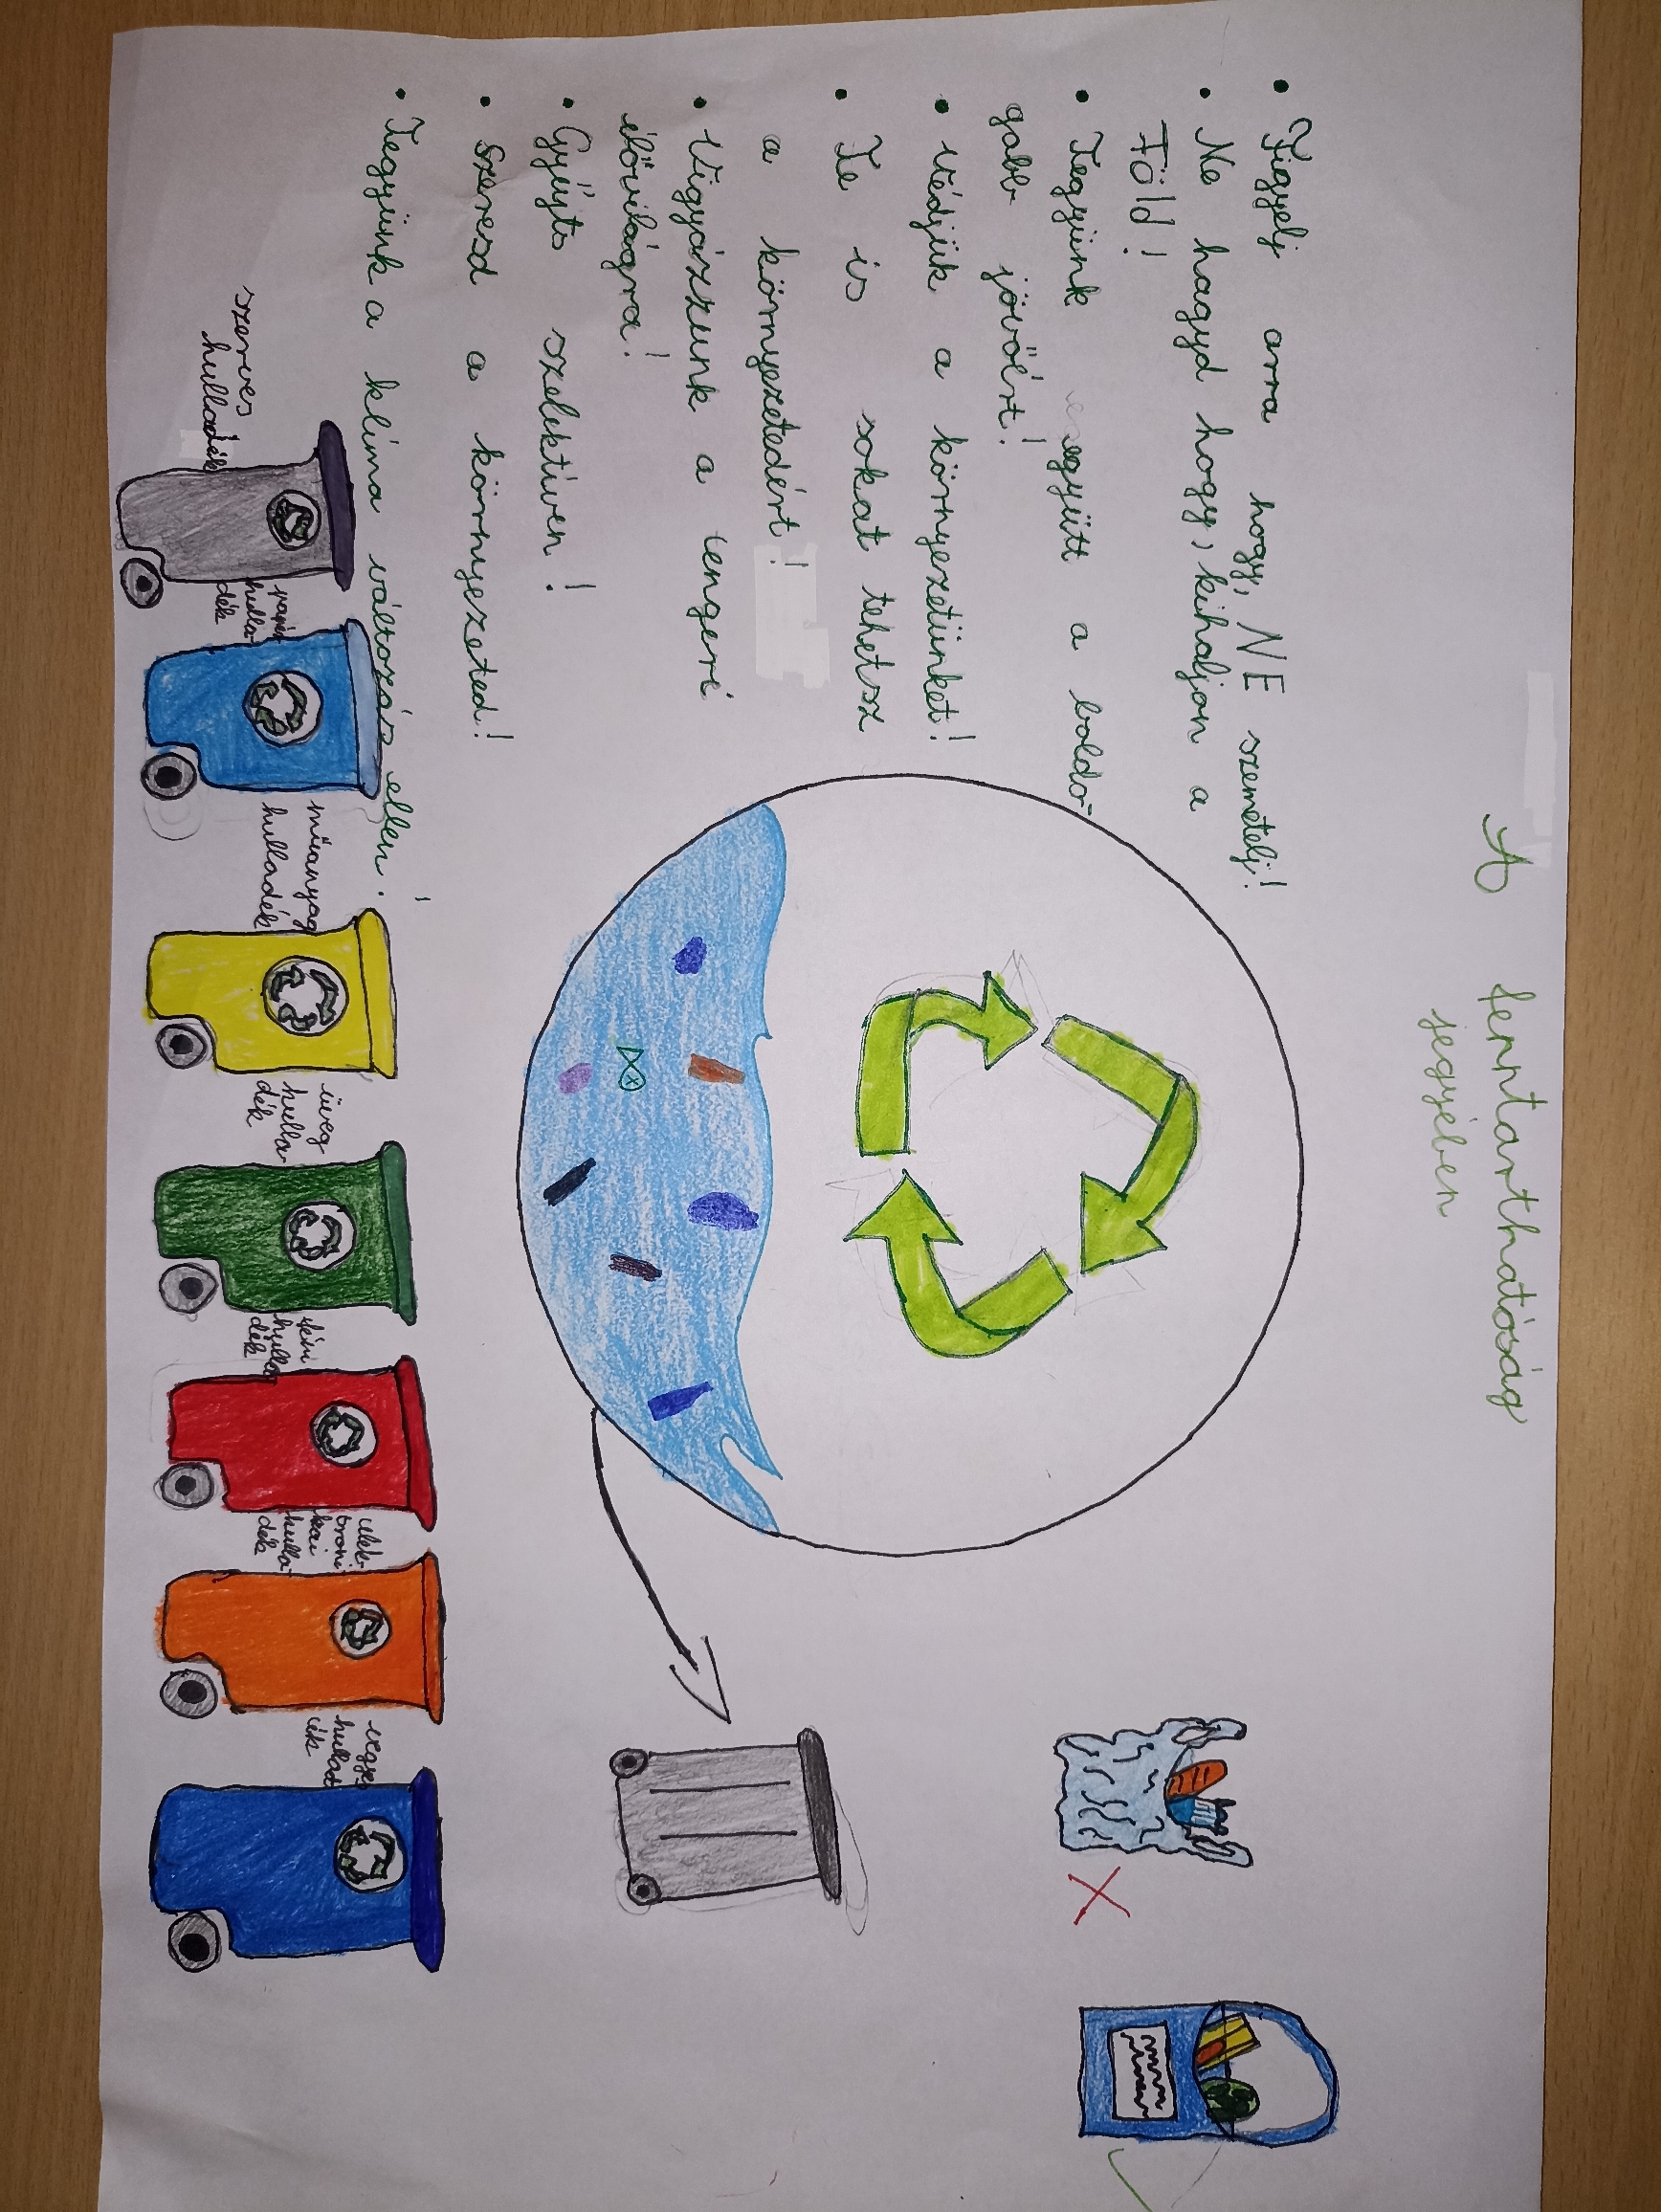 A fenntarthatóság
jegyében
• Figyelj arra hogy, NE szemetelj!
• Ne hagyd hogy, kihaljon a
Föld!
• Tegyünk együtt a boldo-
gabb jövőért!
• Védjük a környezetünket!
• Te is sokat tehetsz
a környezetedért!
• Vigyázzunk a tengeri
élővilágra!
• Gyűjts szelektíven!
• Szeresd a környezeted!
• Tegyünk a klíma változás ellen!
szerves
hulladék
papír
hulla-
dék
műanyag
hulladék
üveg
hulla-
dék
fém
hulla
dék
elek-
troni
kai
hulla-
dék
vegyes
hullad
ék